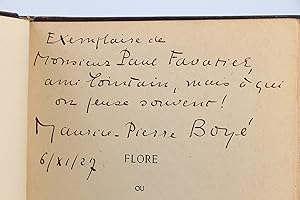 Exemplaire de
Monsieur Paul Favatier,
ami lointain, mais à qui
on pense souvent !
Maurice-Pierre Boyé
6/XI/27
FLORE
OU